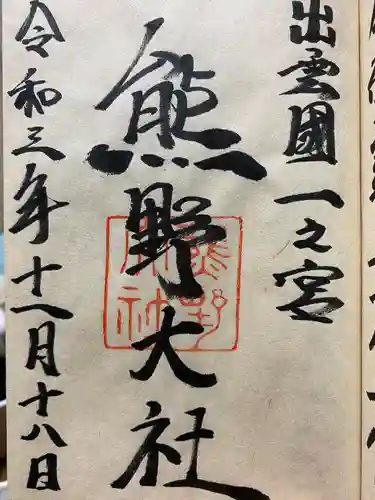 出雲國一之宮
熊野大社
令和三年十一月十八日
熊野
大社